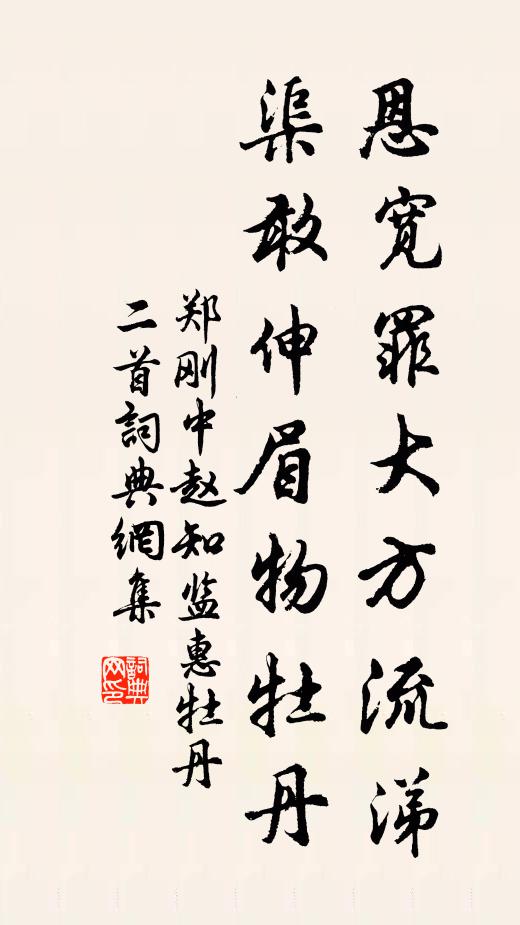 恩宽罪大方流涕
渠敢伸眉物牡丹
郑刚中赵知监惠牡丹
二首詞典網集
詞典网印